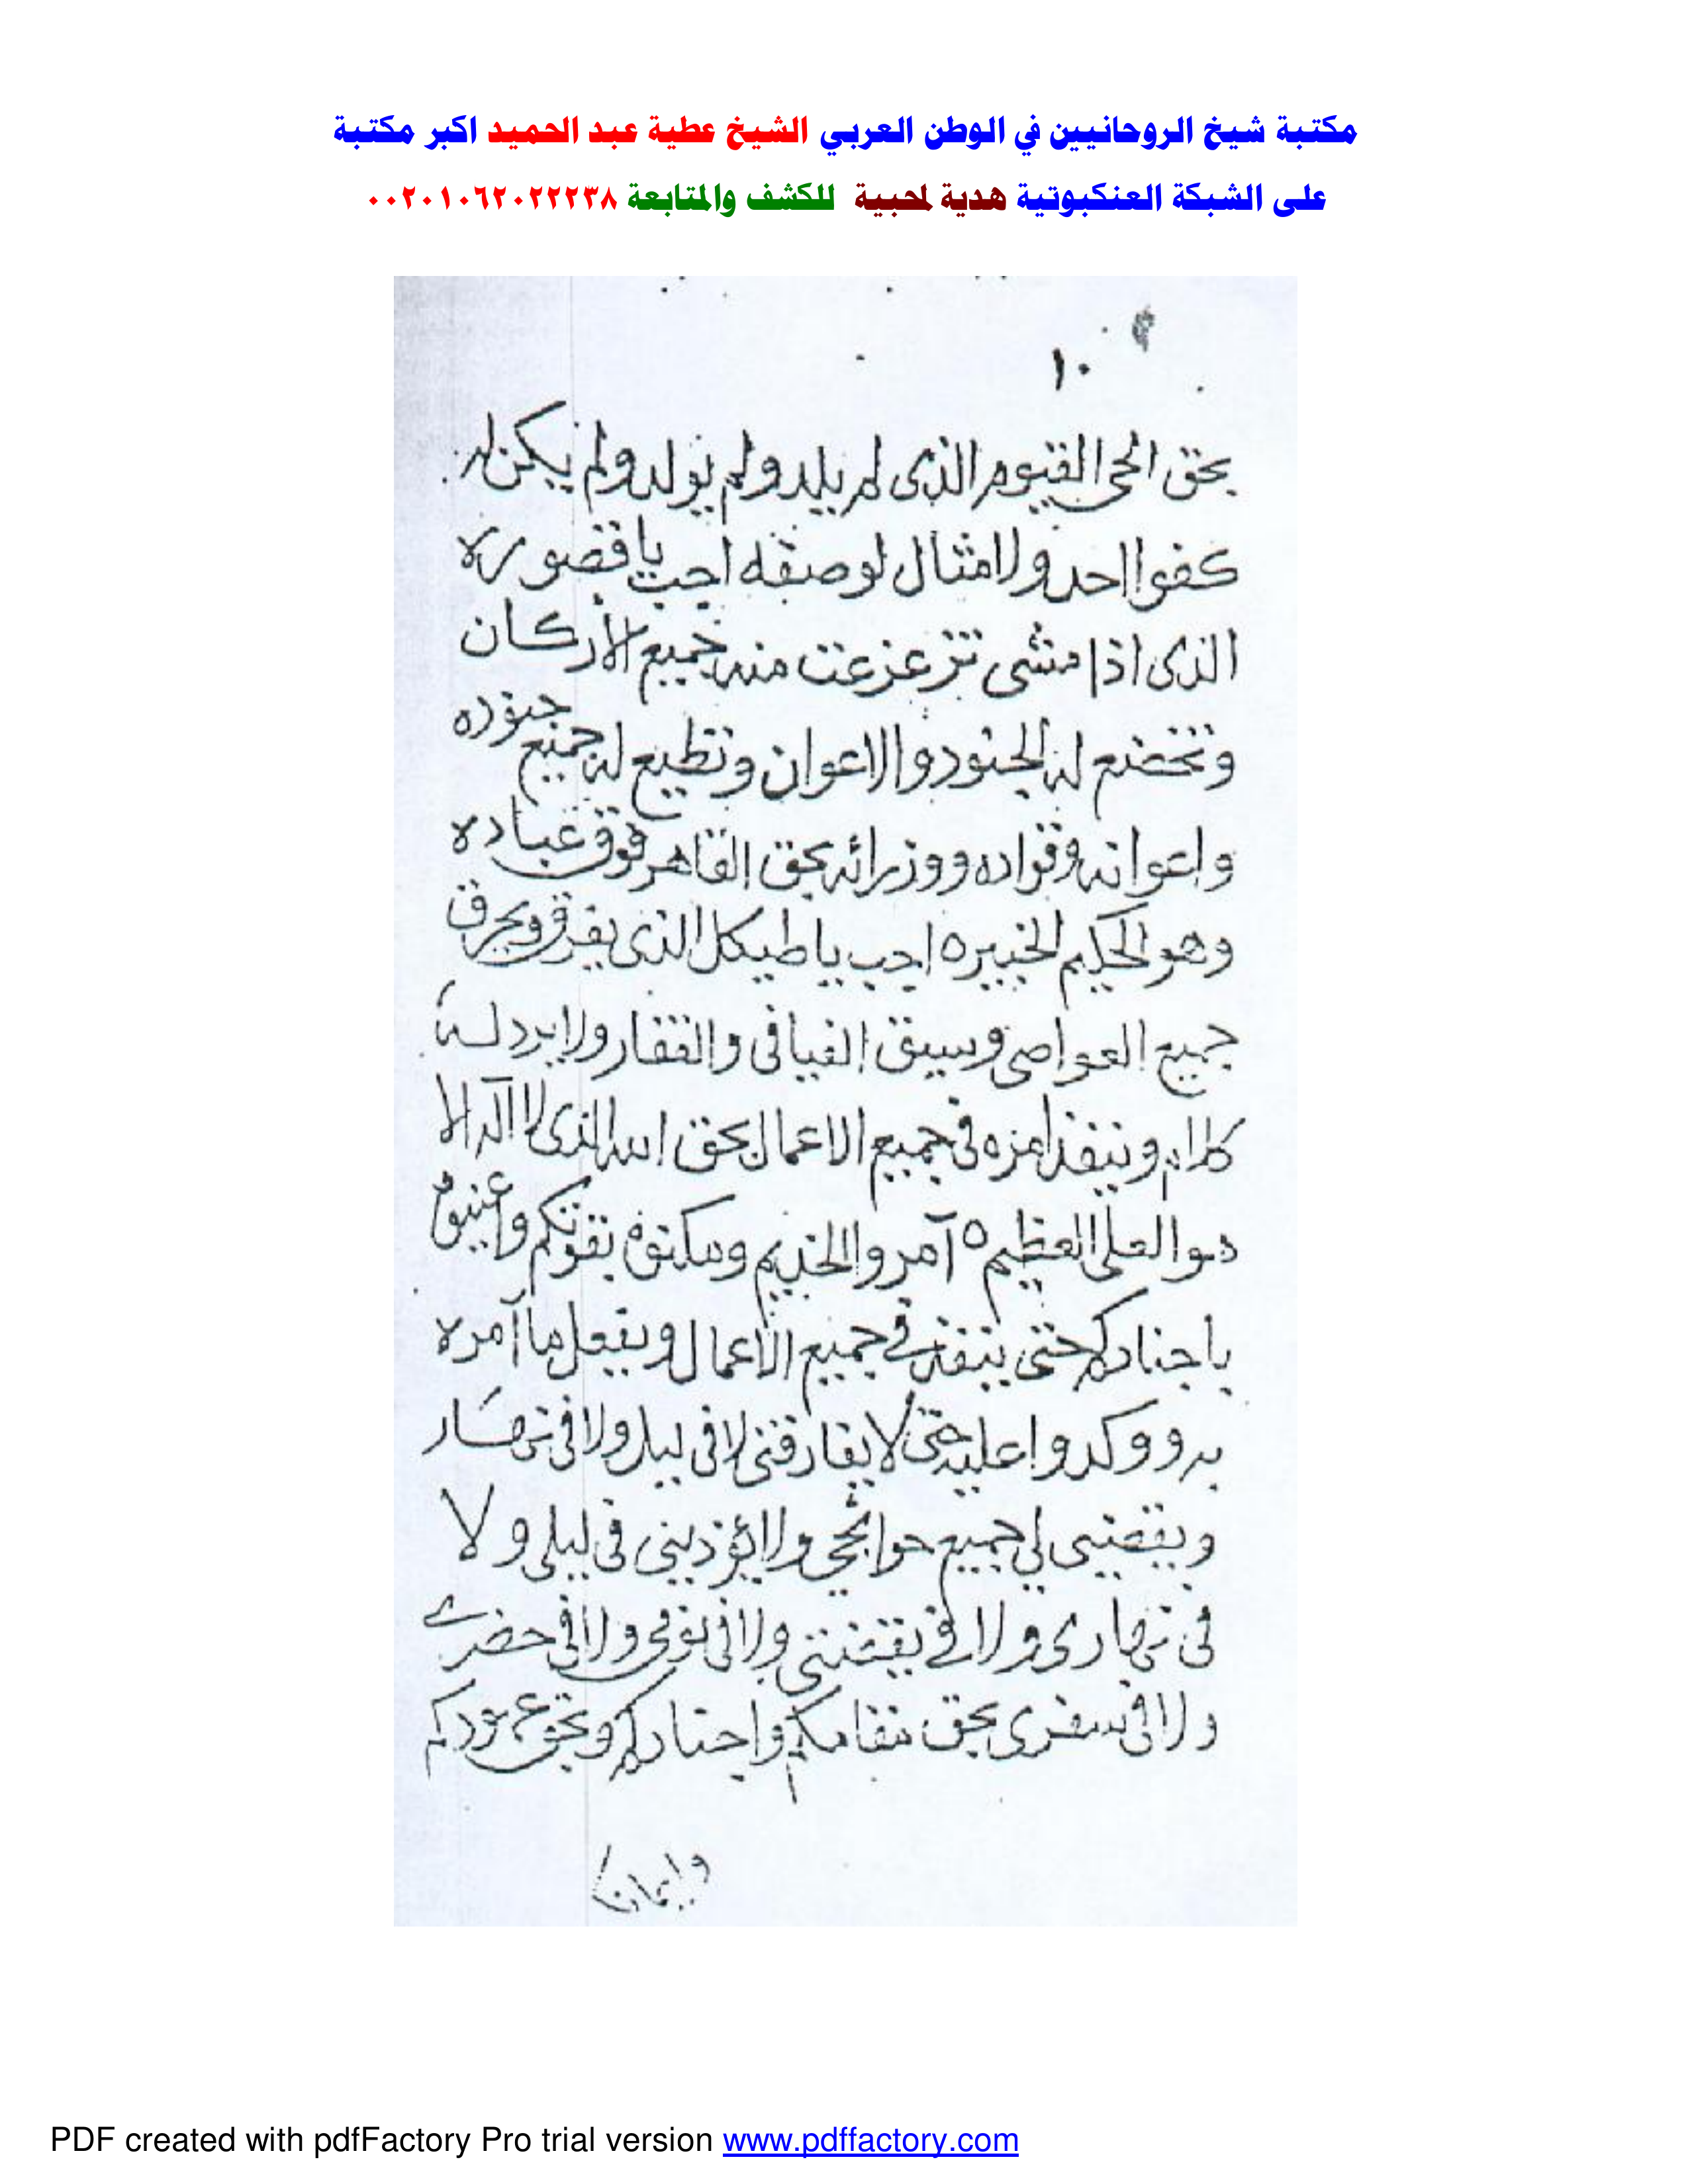 مكتبة شيخ الروحانيين في الوطن العربي الشيخ عطية عبد الحميد اكبر مكتبة
على الشبكة العنكبوتية هدية لمحبية للكشف والمتابعة ٠٠٢٠١٠٦٢٠٢٢٢٣٨
١٠
بحق الحى القيوم الذى لم يلد ولم يولد ولم يكن له
كفوا احد ولا مثال لوصفه اجب يا قصوره
الذى اذا مشى تزعزعت منه جميع الأركان
وتخضع له الجنود والاعوان وتطيع له جميع جنوده
واعوانه وقواده ووزرائه بحق القاهر فوق عباده
وهو الحكيم الخبيره اجب يا طيكل الذى يفرق ويحرق
جميع العواصى وسيق الفيافى والقفار ولا يرد له
كلام وينفذ امره فى جميع الاعمال بحق الله الذى لا اله الا
هو العلى العظيم ٥ آمروا الخديم بقوتكم
باجنادكم حتى ينفذ فى جميع الاعمال ويفعل ما آمره
به ووكدوا عليه حتى لا يفارقنى لا فى ليل ولا فى نهار
ويقضى لى جميع حوائجى ولا يؤذينى فى ليلى ولا
فى نهارى ولا فى يقضتى ولا فى نومى ولا فى حضرى
ولا فى سفرى بحق مقامكم واجنادكم وبحق عهودكم